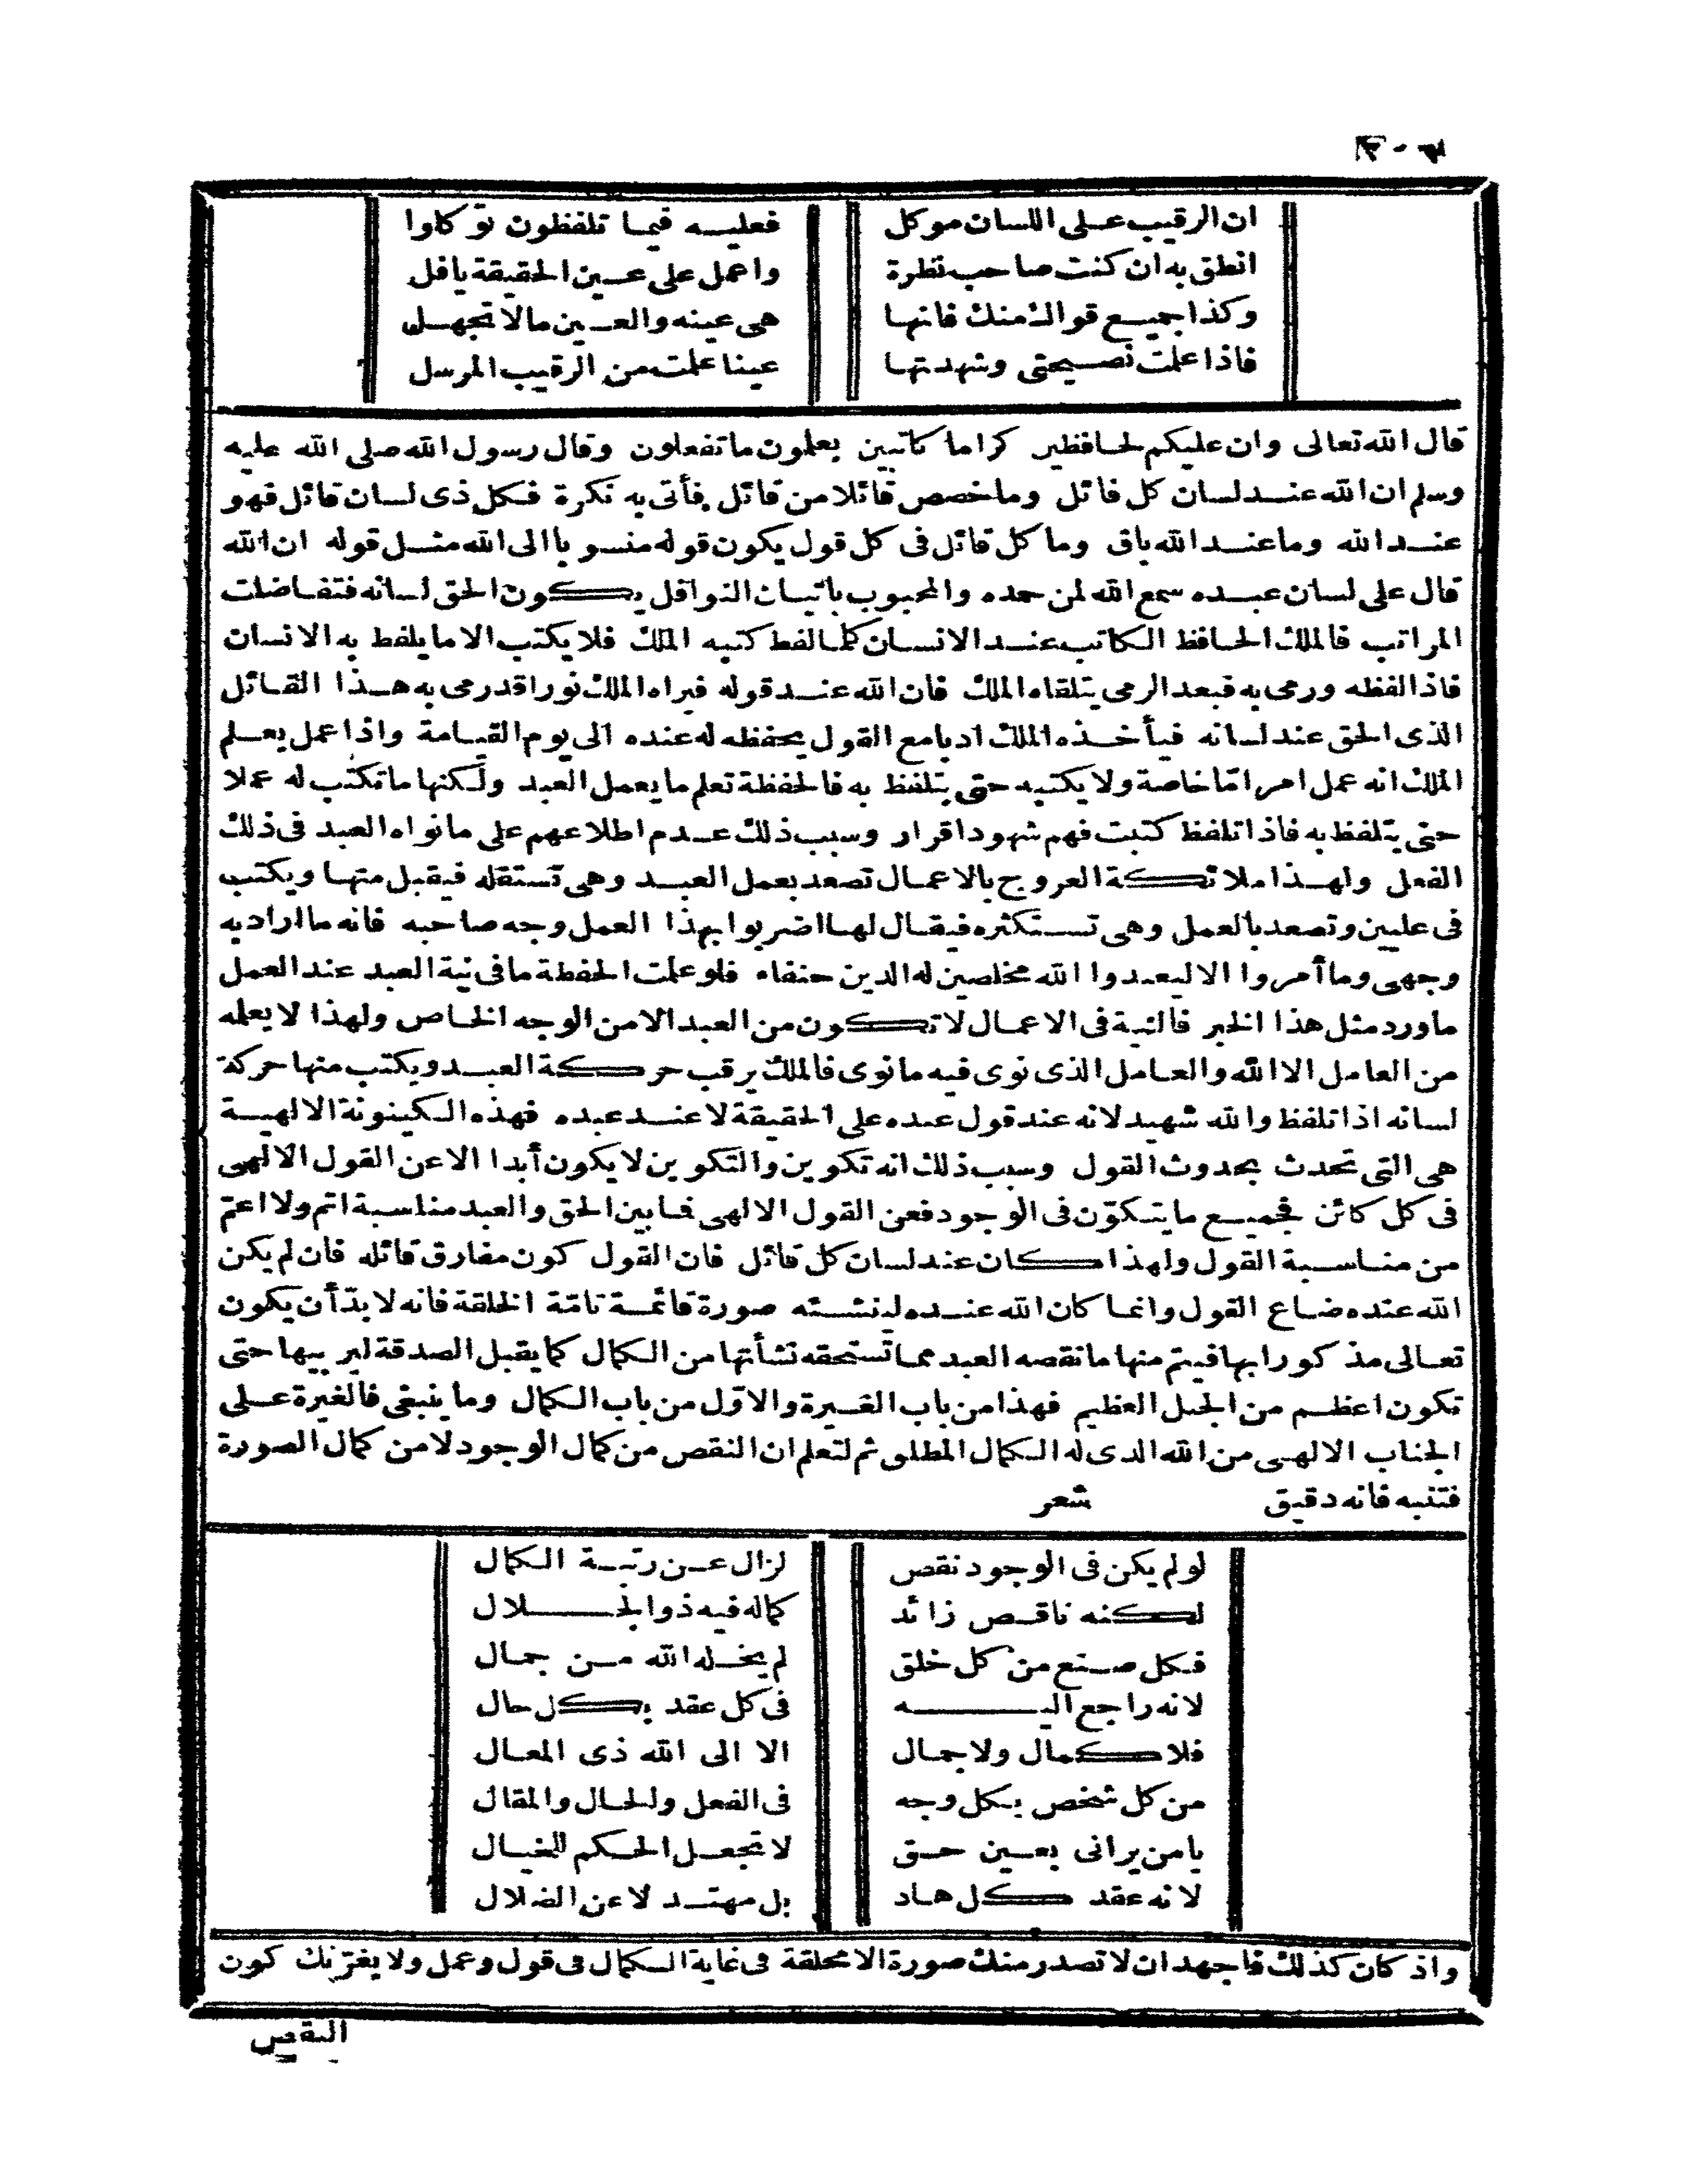 ان الرقيب عـلى اللسان موكل فعليـه فيما تلفظون توكلوا
انطق به ان كنت صاحب نظرة واعمل على عـين الحقيقة يافل
وكذا جميـع قوالـك منك فانها هى عينه والعـين مالا تجهـل
فاذا علمت نصـيحتى وشهدتها عينا علمت من الرقيب المرسل
قال الله تعالى وان عليكم لحافظين كراما كاتبين يعلمون ماتفعلون وقال رسول الله صلى الله عليه
وسلم ان الله عنـد لسان كل قائل وماخصص قائلا من قائل فأتى به نكرة فـكل ذى لسان قائل فهو
عنـد الله وما عنـد الله باق وما كل قائل فى كل قول يكون قوله منسوبا الى الله مثـل قوله ان الله
قال على لسان عبـده سمع الله لمن حمده والمحبوب باتيان النوافل يـكون الحق لسانه فتفاضلت
المراتب فالملك الحافظ الكاتب عنـد الانسان كلما لفظ كتبه الملك فلا يكتب الا ما يلفظ به الانسان
فاذا لفظه ورمى به فبعد الرمى يتلقاه الملك فان الله عنـد قوله فيراه الملك نورا قد رمى به هـذا القائل
الذى الحق عند لسانه فيأخـذه الملك ادبا مع القول يحفظه له عنده الى يوم القيامة واذا عمل يعـلم
الملك انه عمل امرا مّا خاصة ولا يكتبه حتى يتلفظ به فالحفظة تعلم ما يعمل العبد ولكنها ما تكتب له عملا
حتى يتلفظ به فاذا تلفظ كتبت فهم شهود اقرار وسبب ذلك عـدم اطلاعهم على ما نواه العبد فى ذلك
الفعل ولهـذا ملائـكة العروج بالاعمال تصعد بعمل العبـد وهى تستقله فيقبل منها ويكتب
فى عليين وتصعد بالعمل وهى تسـتكثره فيقـال لها اضربوا بهذا العمل وجه صاحبه فانه ما اراد به
وجهى وما أمروا الا ليعبدوا الله مخلصين له الدين حنفاء فلو علمت الحفظة ما فى نية العبد عند العمل
ماورد مثل هذا الخبر فالنية فى الاعمال لا تـكون من العبد الا من الوجه الخاص ولهذا لا يعلمه
من العامل الا الله والعامل الذى نوى فيه ما نوى فالملك يرقب حركـة العبـد ويكتب منها حركة
لسانه اذا تلفظ والله شهيد لانه عند قول عبده على الحقيقة لا عنـد عبده فهذه الكينونة الالهيـة
هى التى تحدث بحدوث القول وسبب ذلك انه تكوين والتكوين لا يكون أبدا الا عن القول الالهى
فى كل كائن فجميـع ما يتـكوّن فى الوجود فعن القول الالهى فما بين الحق والعبد مناسبة اتم ولا اعمّ
من مناسـبة القول ولهذا كـان عند لسان كل قائل فان القول كون مفارق قائله فان لم يكن
الله عنده ضاع القول وانما كان الله عنـده لينشـئه صورة قائمـة تامّة الخلقة فانه لا بدّ أن يكون
تعـالى مذكورا بها فيتم منها ما نقصه العبد مما تستحقه نشأتها من الكمال كما يقبل الصدقة ليربيها حتى
تكون اعظـم من الجبل العظيم فهذا من باب الغـيرة والاوّل من باب الكمال وما ينبغى فالغيرة عـلى
الجناب الالهـى من الله الذى له الكمال المطلق ثم لتعلم ان النقص من كمال الوجود لا من كمال الصورة
فتنبه فانه دقيق شعر
لو لم يكن فى الوجود نقص لزال عـن رتبـة الكمال
لـكنه ناقـص زائد كماله فيه ذو الجـلال
فـكل صـنع من كل خلق لم يخـله الله مـن جمال
لانه راجع اليـه فى كل عقد بـكل حال
فلا كـمال ولا جمال الا الى الله ذى المعـال
من كل شخص بكل وجه فى الفعل والحال والمقال
يا من يرانى بعـين حـق لا تجعـل الحـكم للخيـال
لانه عقد كـل هـاد بل مهتـد لا عن الضلال
واذ كان كذلك فاجهد ان لا تصدر منك صورة الا مخلقة فى غاية الـكمال فى قول وعمل ولا يغرّنك كون
النقص